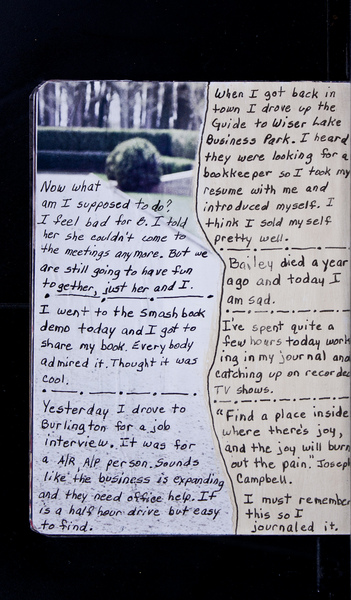 Now what
am I supposed to do?
I feel bad for B. I told
her she couldn't come to
the meetings anymore. But we
are still going to have fun
together, just her and I.
I went to the Smash book
demo today and I got to
share my book. Everybody
admired it. Thought it was
cool.
Yesterday I drove to
Burlington for a job
interview. It was for
a A/R, A/P person. Sounds
like the business is expanding
and they need office help. It
is a half hour drive but easy
to find.
When I got back in
town I drove up the
Guide to Wiser Lake
Business Park. I heard
they were looking for a
bookkeeper so I took my
resume with me and
introduced myself. I
think I sold myself
pretty well.
Bailey died a year
ago and today I
am sad.
I've spent quite a
few hours today work
ing in my journal and
catching up on recorded
TV shows.
"Find a place inside
where there's joy,
and the joy will burn
out the pain." Joseph
Campbell.
I must remember
this so I
journaled it.